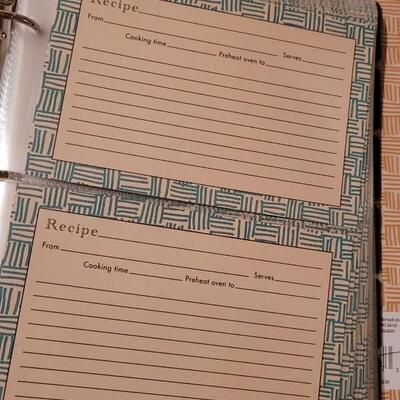 Recipe
From
Cooking time Preheat oven to Serves
Recipe
From
Cooking time Preheat oven to Serves